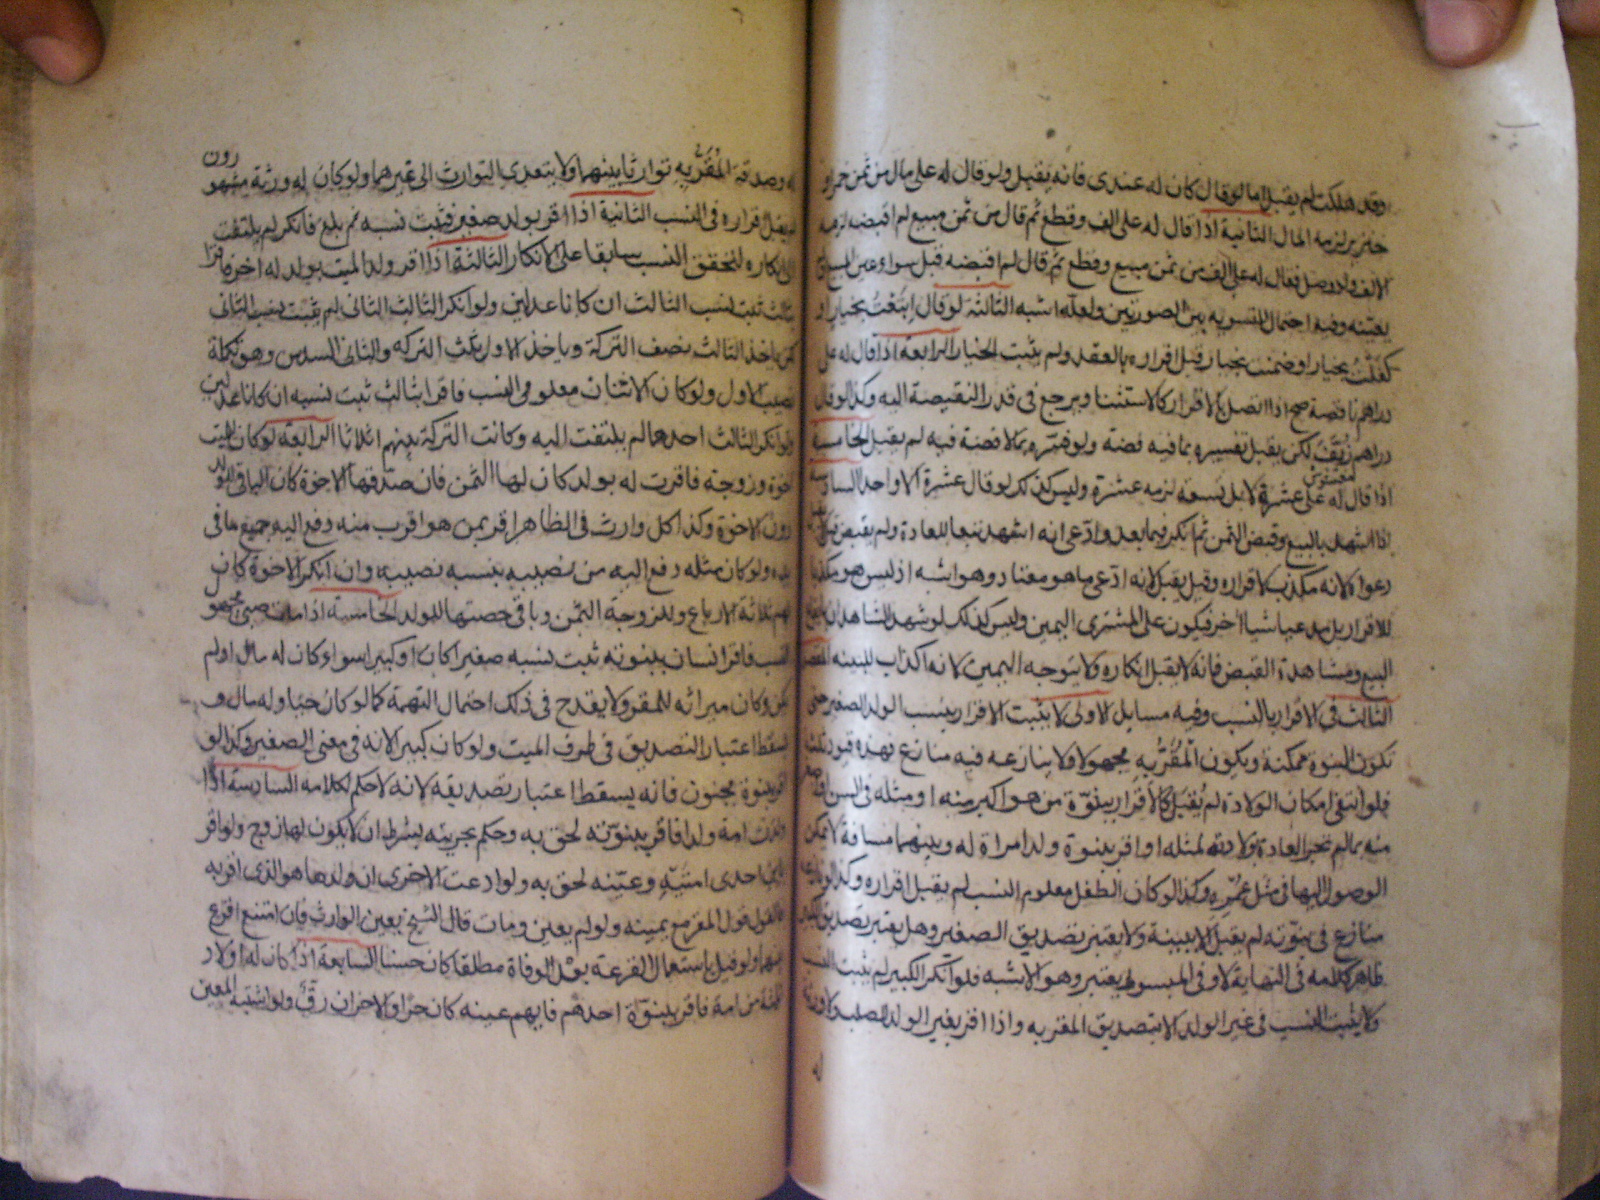 وقد هلكت لم يقبل اما لو قال كان له عندى فانه يقبل ولو قال له على مال من ثمن خمر او
خنزير لزمه المال الثانية اذا قال له على الف وقطع ثم قال من ثمن مبيع لم اقبضه لزمه
الالف ولو وصل فقال له على الف من ثمن مبيع وقطع ثم قال لم اقبضه قبل سواء عين المبيع او
يعينه وفيه احتمال للتسوية بين الصورتين ولعله اشبه الثالثة لو قال ابتعت بخيار او
كفلت بخيار او ضمنت بخيار قبل اقراره بالعقد ولم يثبت الخيار الرابعة اذا قال له على
دراهم ناقصة صح اذا اتصل بالاقرار كالاستثنا ويرجع فى قدر النقيصة اليه وكذا لو قال
دراهم زيف لكن يقبل تفسيره بما فيه فضة ولو فسره بما لا فضة فيه لم يقبل الخامسة
مغشوش
اذا قال له على عشرة لا بل تسعة لزمه عشرة وليس كذلك لو قال عشرة الا واحد السادسة
اذا اشهد بالبيع وقبض الثمن ثم انكر فيما بعد وادعى انه اشهد تبعا للعادة ولم يقبض قيل
دعواه لانه مكذب لاقراره وقيل يقبل لانه ادعى ما هو معتاد وهو اشبه اذ ليس هو مكذبا
للاقرار بل مدعيا شيا اخر فيكون على المشترى اليمين وليس كذلك لو شهد الشاهدان بايقاع
البيع ومشاهدة القبض فانه لا يقبل انكاره ولا يتوجه اليمين لانه اكذاب للبينه
الثالث فى الاقرار بالنسب وفيه مسايل الاولى لا يثبت الاقرار بنسب الولد الصغير حتى
تكون البنوة ممكنة ويكون المقر به مجهولا ولا ينازعه فيه منازع فهذه قيود ثلثة
فلو انتفى امكان الولادة لم يقبل كالاقرار ببنوة من هو اكبر منه او مثله فى السن او اصغر
منه بما لم تجر العادة بولادته لمثله او اقر ببنوة ولد امراة له وبينهما مسافة لا يمكن
الوصول اليها فى مثل عمره وكذا لو كان الطفل معلوم النسب لم يقبل اقراره وكذا لو نازعه
منازع فى بنوته لم يقبل الا ببينة ولا يعتبر تصديق الصغير وهل يعتبر تصديق الكبير
ظاهر كلامه فى النهاية لا وفى المبسوط يعتبر وهو الاشبه فلو انكر الكبير لم يثبت النسب
ولا يثبت النسب فى غير الولد الا بتصديق المقر به واذا اقر بغير الولد للصلب ولا ورثة
له
له وصدقه المقر به توارثا بينهما ولا يتعدى التوارث الى غيرهما ولو كان له ورثة مشهو
رون
لم يقبل اقراره فى النسب الثانية اذا اقر بولد صغير فثبت نسبه ثم بلغ فانكر لم يلتفت
الى انكاره لتحقق النسب سابقا على الانكار الثالثة اذا اقر ولد الميت بولد له اخر فاقرا
بثالث ثبت نسب الثالث ان كانا عدلين ولو انكر الثالث الثانى لم يثبت نسب الثانى
لكن ياخذ الثالث نصف التركة وياخذ الاول ثلث التركه والثانى السدس وهو تكملة
نصيب الاول ولو كان الاثنان معلومى النسب فاقرا بثالث ثبت نسبه ان كانا عدلين
ولو انكر الثالث احدهما لم يلتفت اليه وكانت التركة بينهم اثلاثا الرابعة لو كان للميت
اخوة وزوجة فاقرت له بولد كان لها الثمن فان صدقها الاخوة كان الباقى للولد
دون الاخوة وكذا كل وارث فى الظاهر اقر بمن هو اقرب منه دفع اليه جميع ما فى
يده ولو كان مثله دفع اليه من نصيبه بنسبه نصيبه وان انكر الاخوة كان
لهم ثلاثة الارباع وللزوجة الثمن وباقى حصتها للولد الخامسة اذا مات صبى مجهو
النسب فاقر انسان ببنوته ثبت نسبه صغيرا كان او كبيرا سواء كان له مال او لم
يكن وكان ميراثه للمقر ولا يقدح فى ذلك احتمال التهمة كما لو كان حيا وله مال و
يسقط اعتبار التصديق فى طرف الميت ولو كان كبيرا لانه فى معنى الصغير وكذا لو
اقر ببنوة مجنون فانه يسقط اعتبار تصديقه لانه لا حكم لكلامه السادسة اذا
ولدت امة ولدا فاقر ببنوته لحق به وحكم بحريته بشرط ان لا يكون لها زوج ولو اقر
بابن احدى امتيه وعينه لحق به ولو ادعت الاخرى ان ولدها هو الذى اقر به
فالقول قول المقر مع يمينه ولو لم يعين ومات قال الشيخ يعين الوارث فان امتنع اقرع
بينهما ولو قيل باستعمال القرعة بعد الوفاة مطلقا كان حسنا السابعة اذا كان له اولاد
ثلثة من امة فاقر ببنوة احدهم فايهم عينه كان حرا والاخران رق ولو اشتبه المعين